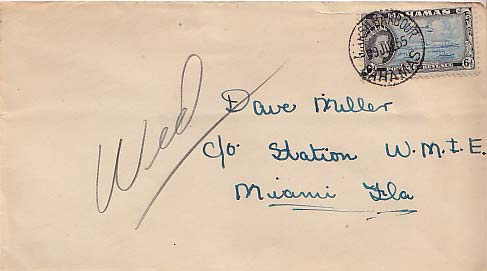 BAHAMAS
BAHAMAS
6d
Wed
Dave Miller
c/o Station W.M.I.E.
Miami Fla